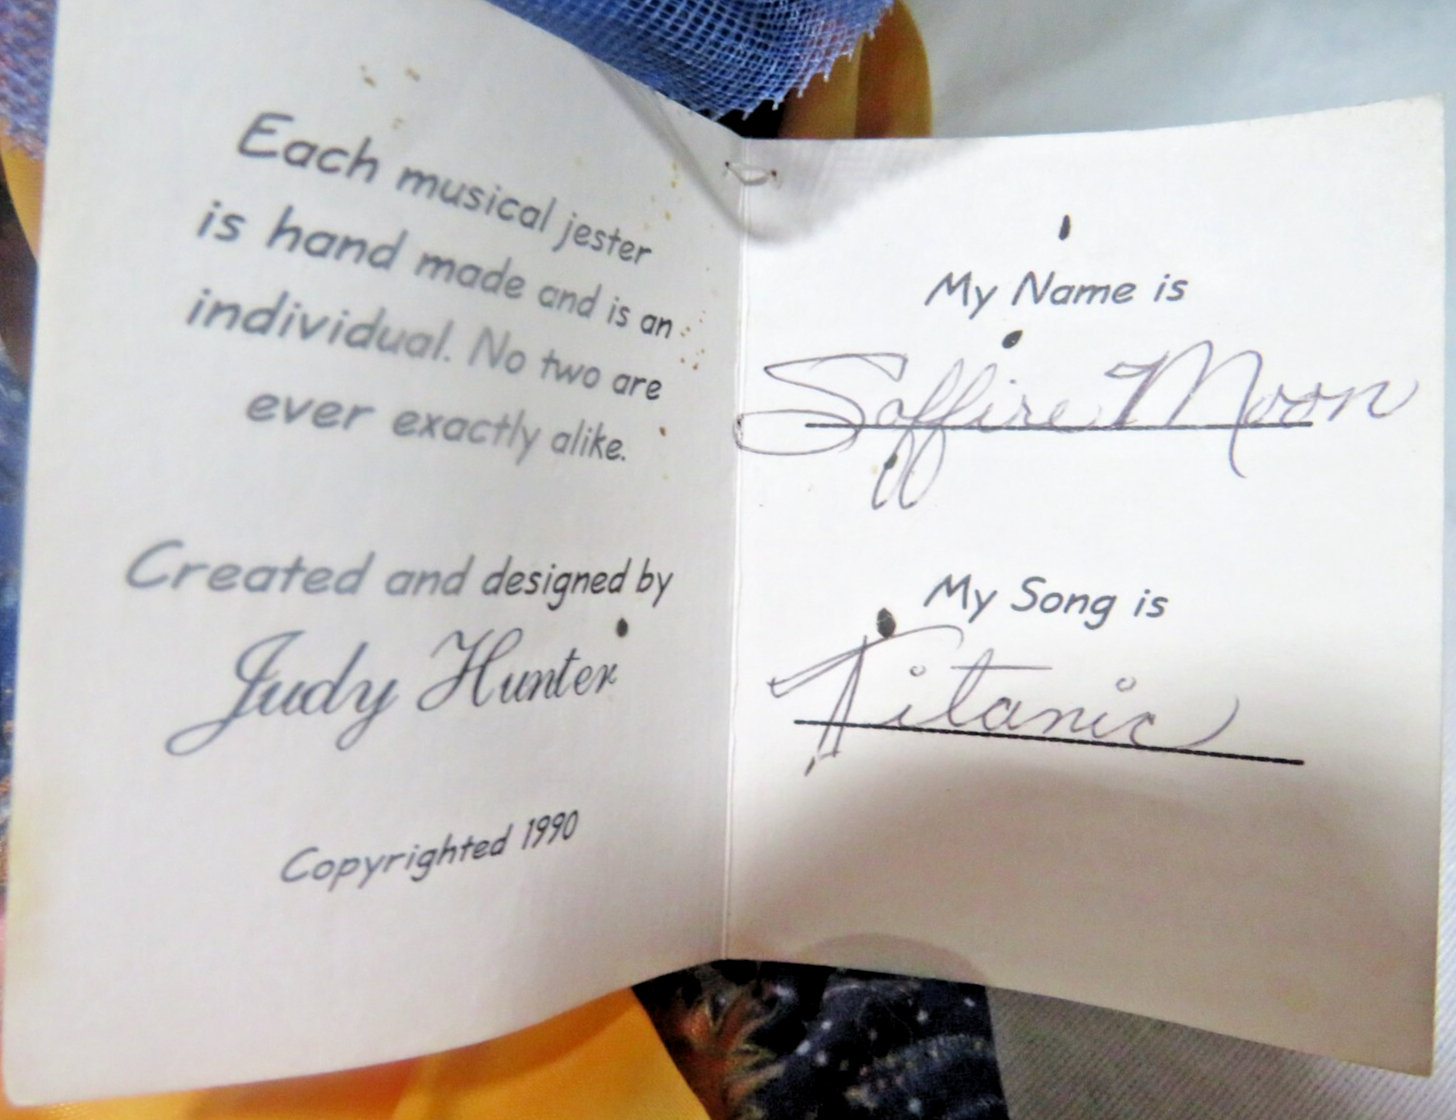 Each musical jester
is hand made and is an
individual. No two are
ever exactly alike.
Created and designed by
Judy Hunter
Copyrighted 1990
My Name is
Saffire Moon
My Song is
Titanic